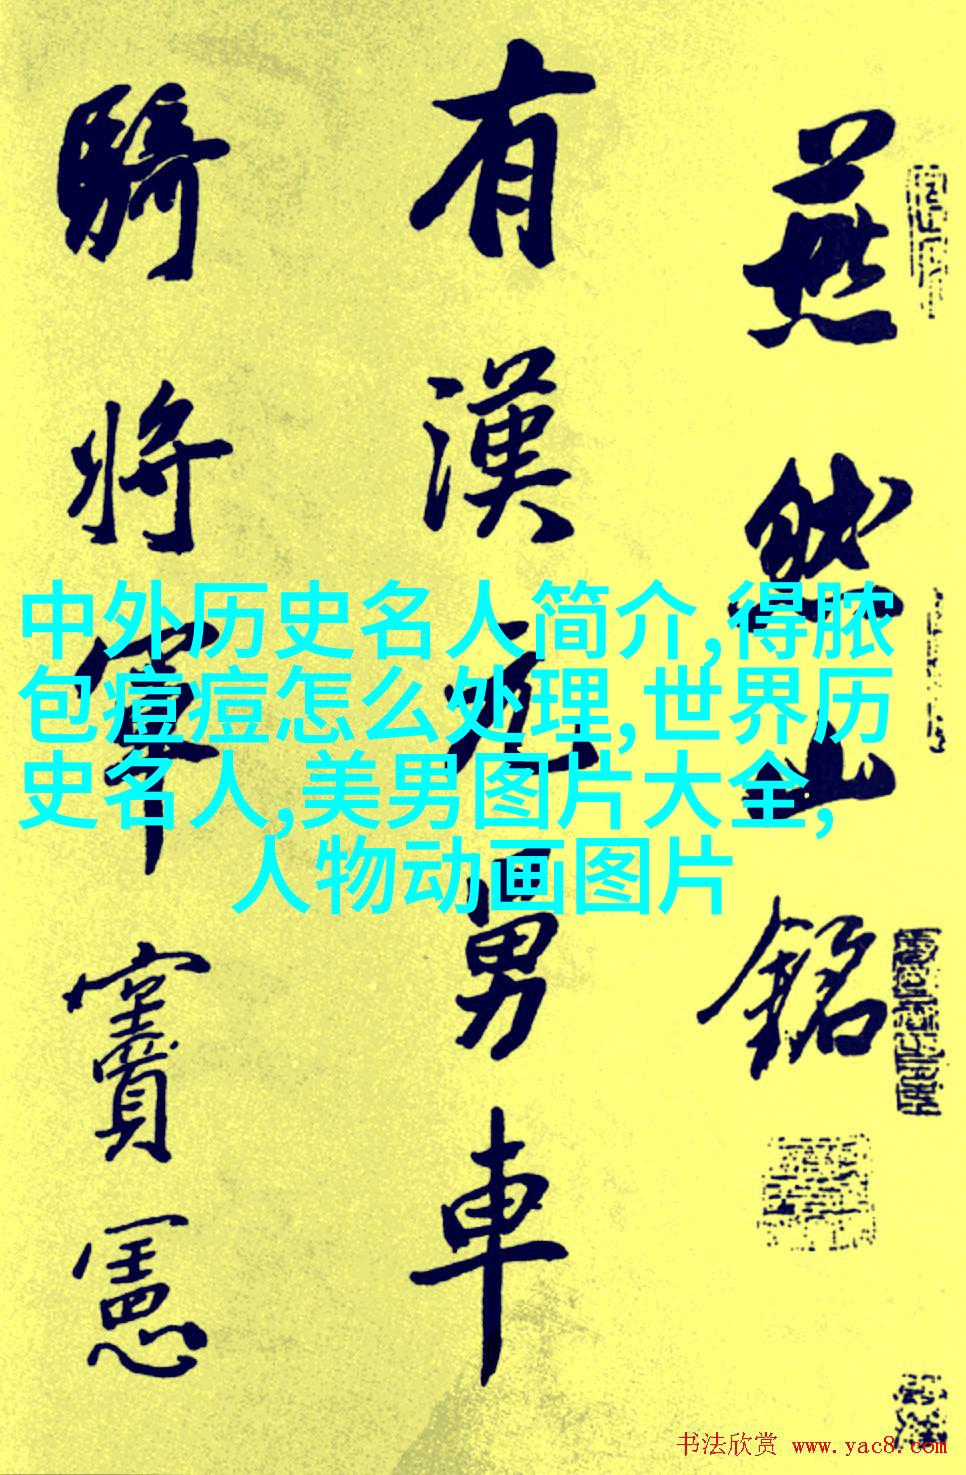 燕然山銘
有漢元舅車
騎將軍竇憲
中外历史名人简介,得脓
包痘痘怎么处理,世界历
史名人,美男图片大全,
人物动画图片
书法欣赏 www.yac8.com